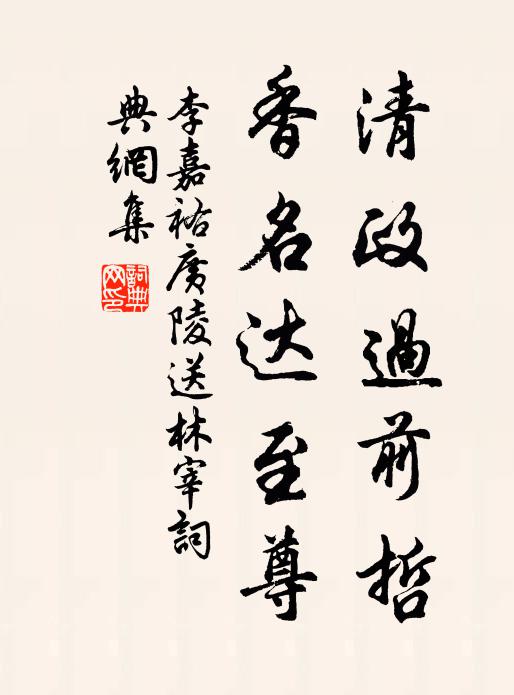 清政過前哲
香名达至尊
李嘉祐廣陵送林宰詞
典網集
詞典网印